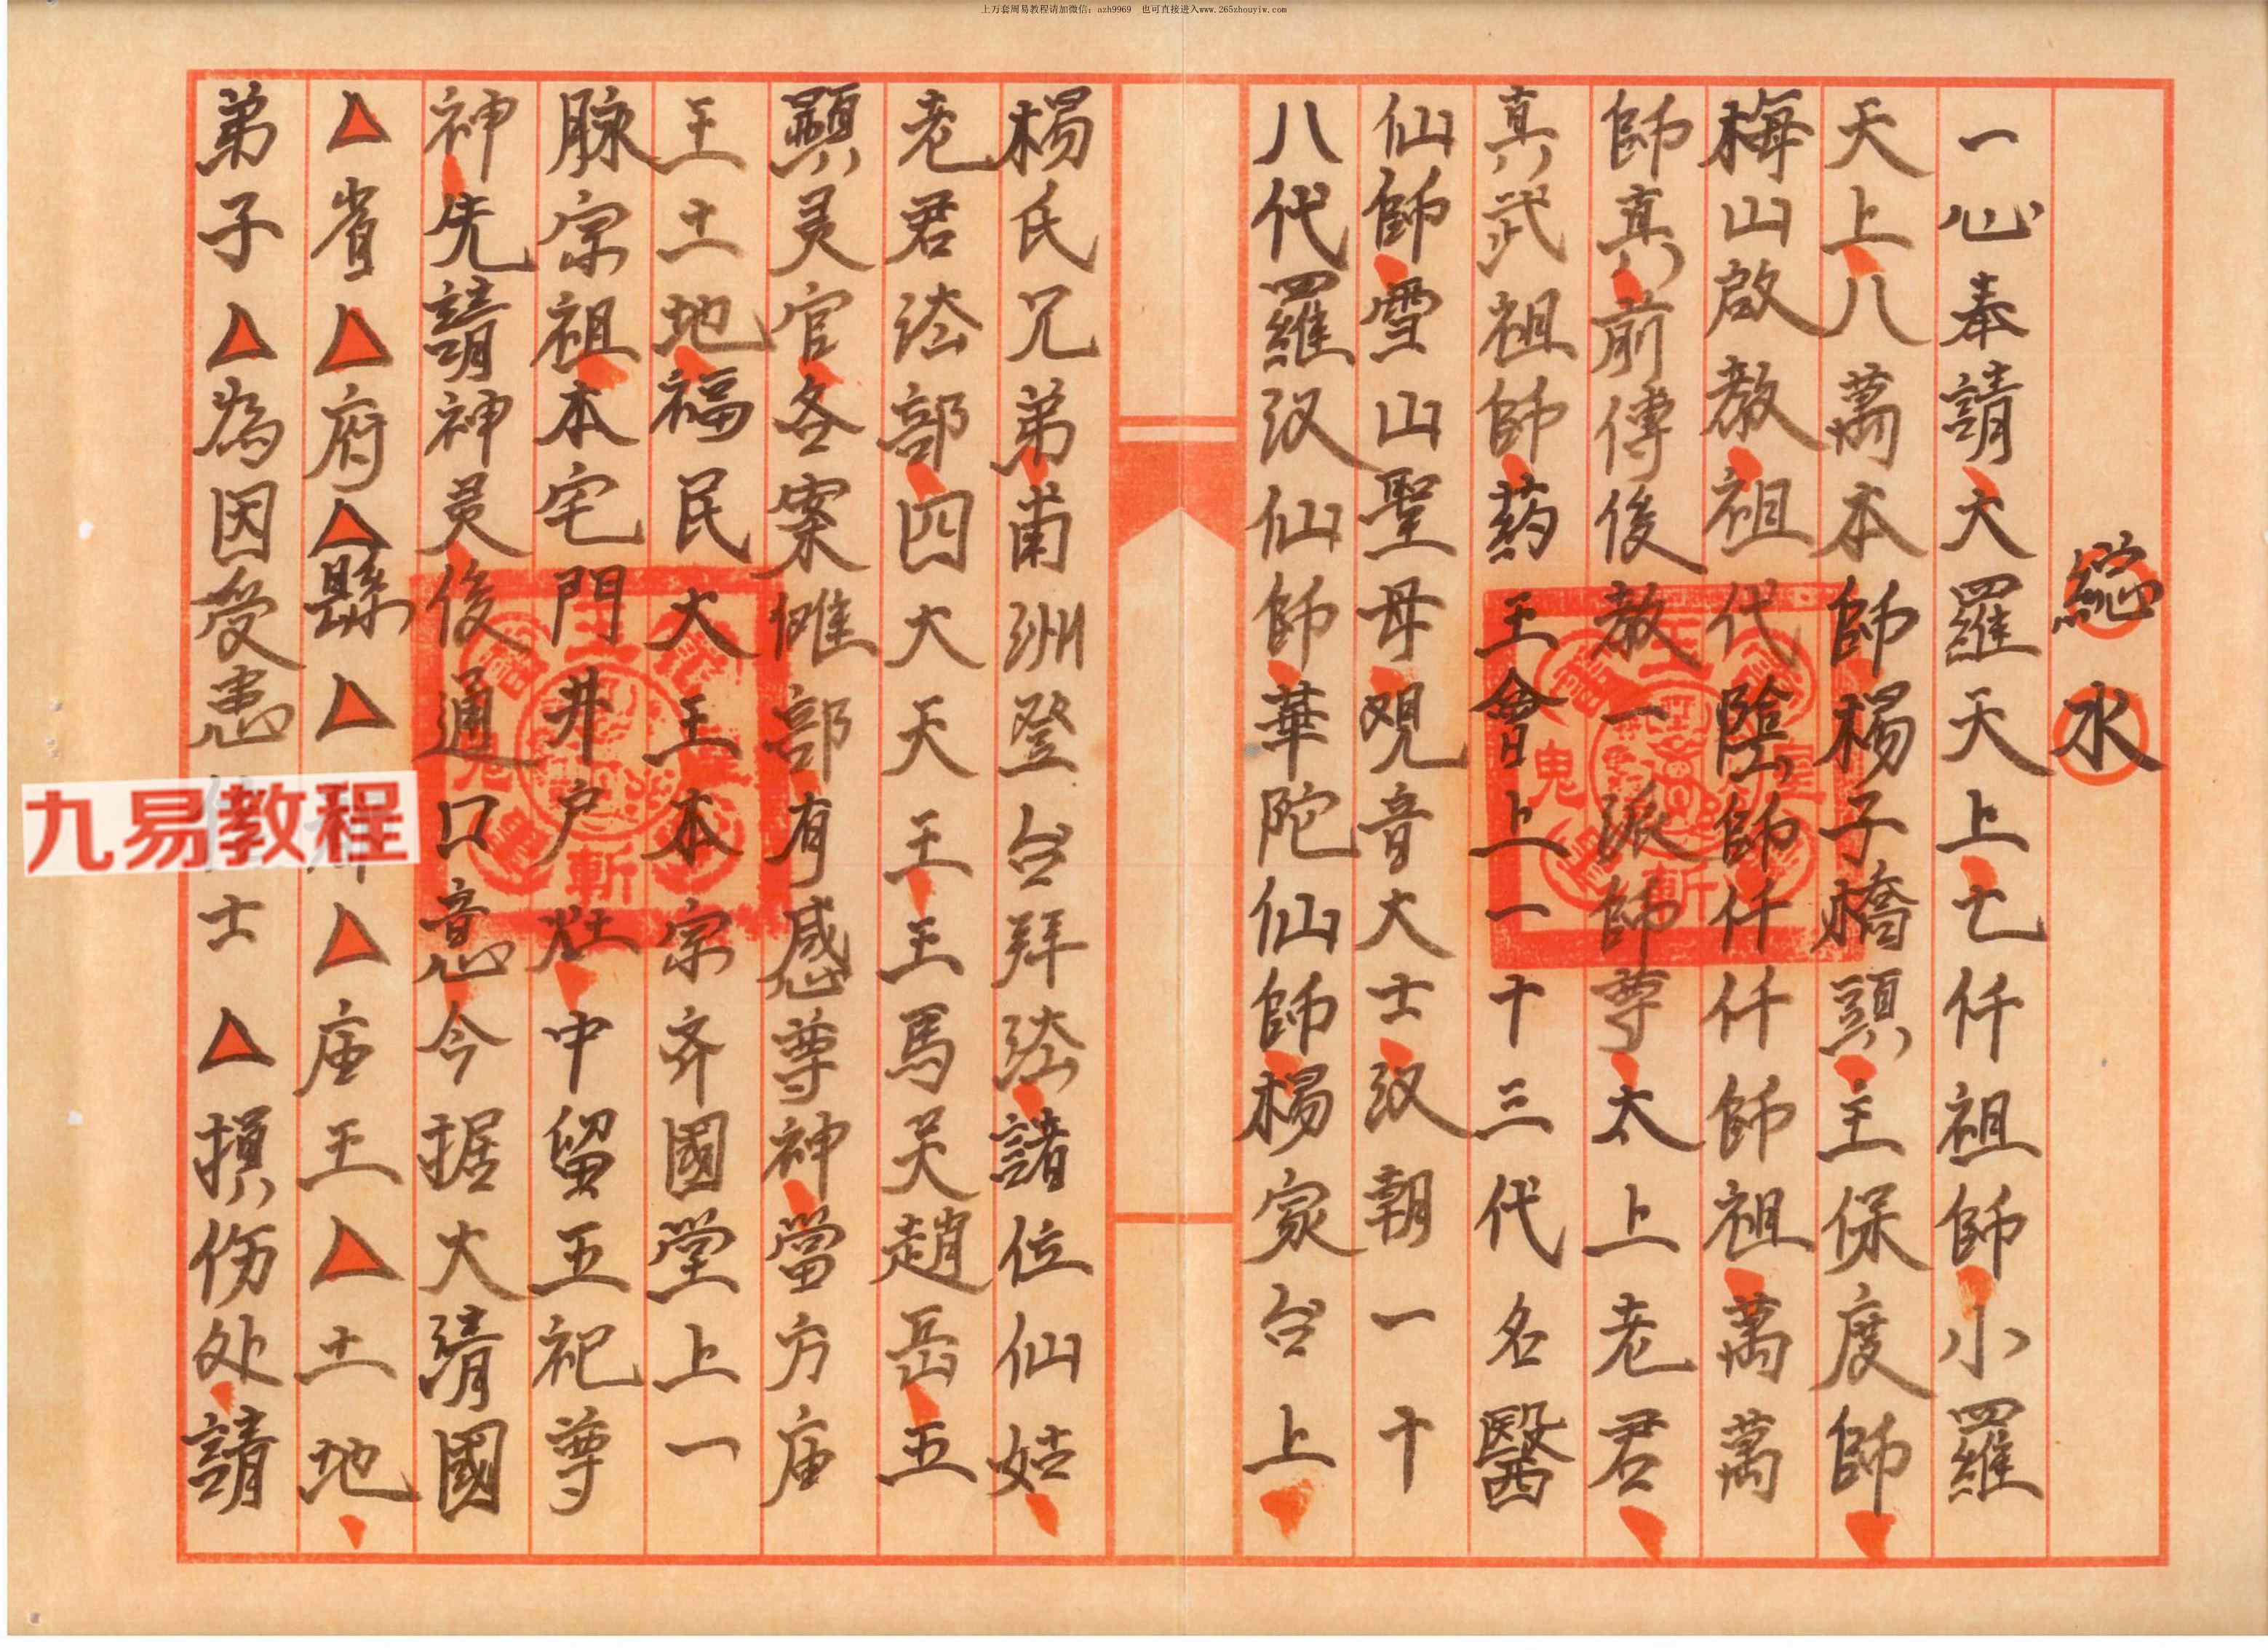 上万套周易教程请加微信：azh9969　也可直接进入www.265zhouyiw.com
總水
一心奉請大羅天上七仟祖師小羅
天上八萬本師楊子橋頭主保度師
梅山啟教祖代陰師仟仟師祖萬萬
師真前傳後教一派師尊太上老君
真武祖師药王會上一十三代名醫
仙師雪山聖母观音大士汉朝一十
八代羅汉仙師華陀仙師楊家台上
楊氏兄弟甫洲登台拜法諸位仙姑
老君法部四大天王王馬吴趙岳五
顕灵官各案惟部有感尊神當方庙
王土地福民大王本宗齐國堂上一
脉宗祖本宅門井户灶中留五祀尊
神先請神員後通口意今据大清國
△省△府△縣△△庙王△土地
弟子△為因受患士△損伤处請
九易教程